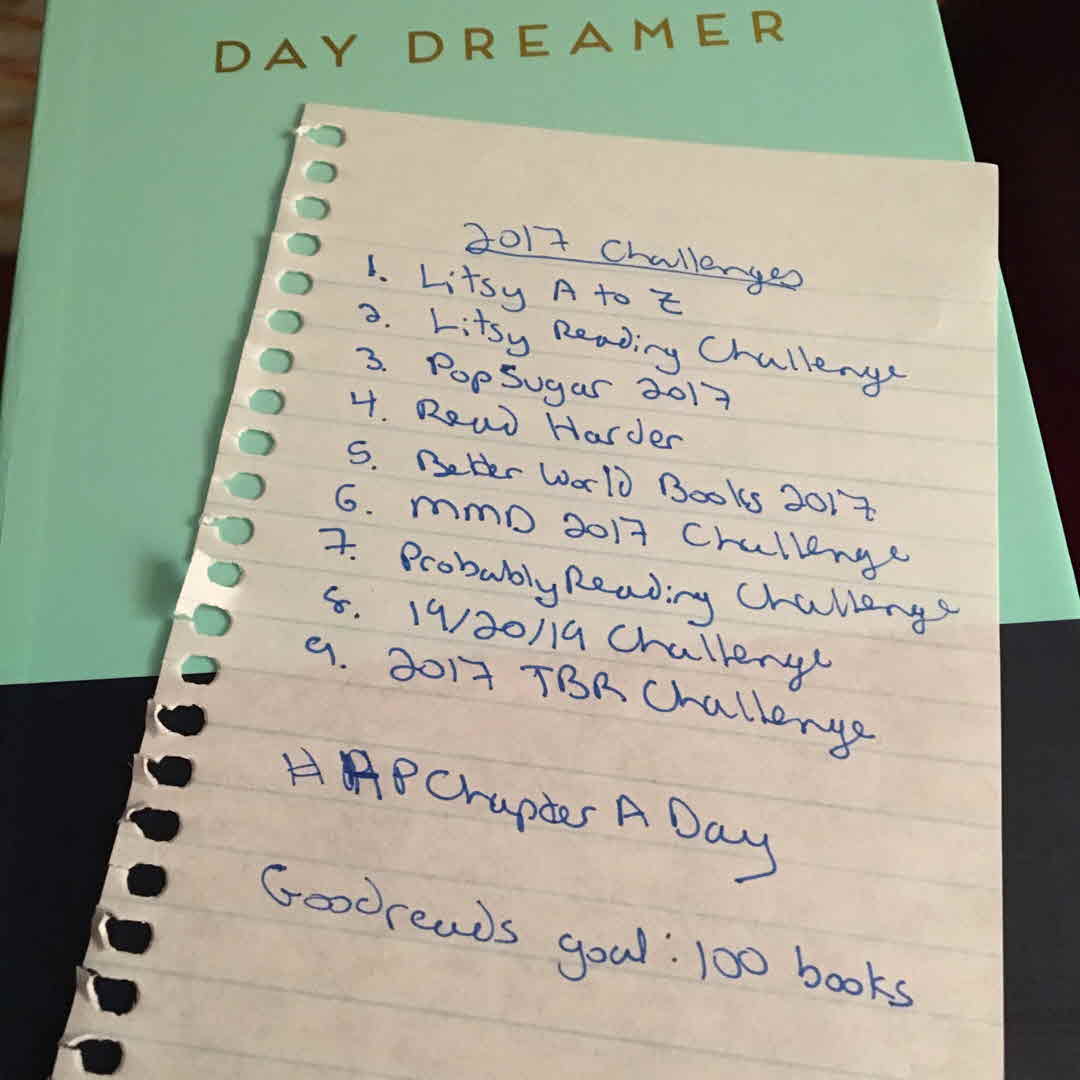 DAY DREAMER
2017 Challenges
1. Litsy A to Z
2. Litsy Reading Challenge
3. PopSugar 2017
4. Read Harder
5. Better World Books 2017
6. MMD 2017 Challenge
7. ProbablyReading Challenge
8. 19/20/19 Challenge
9. 2017 TBR Challenge
# HPChapter A Day
Goodreads goal: 100 books